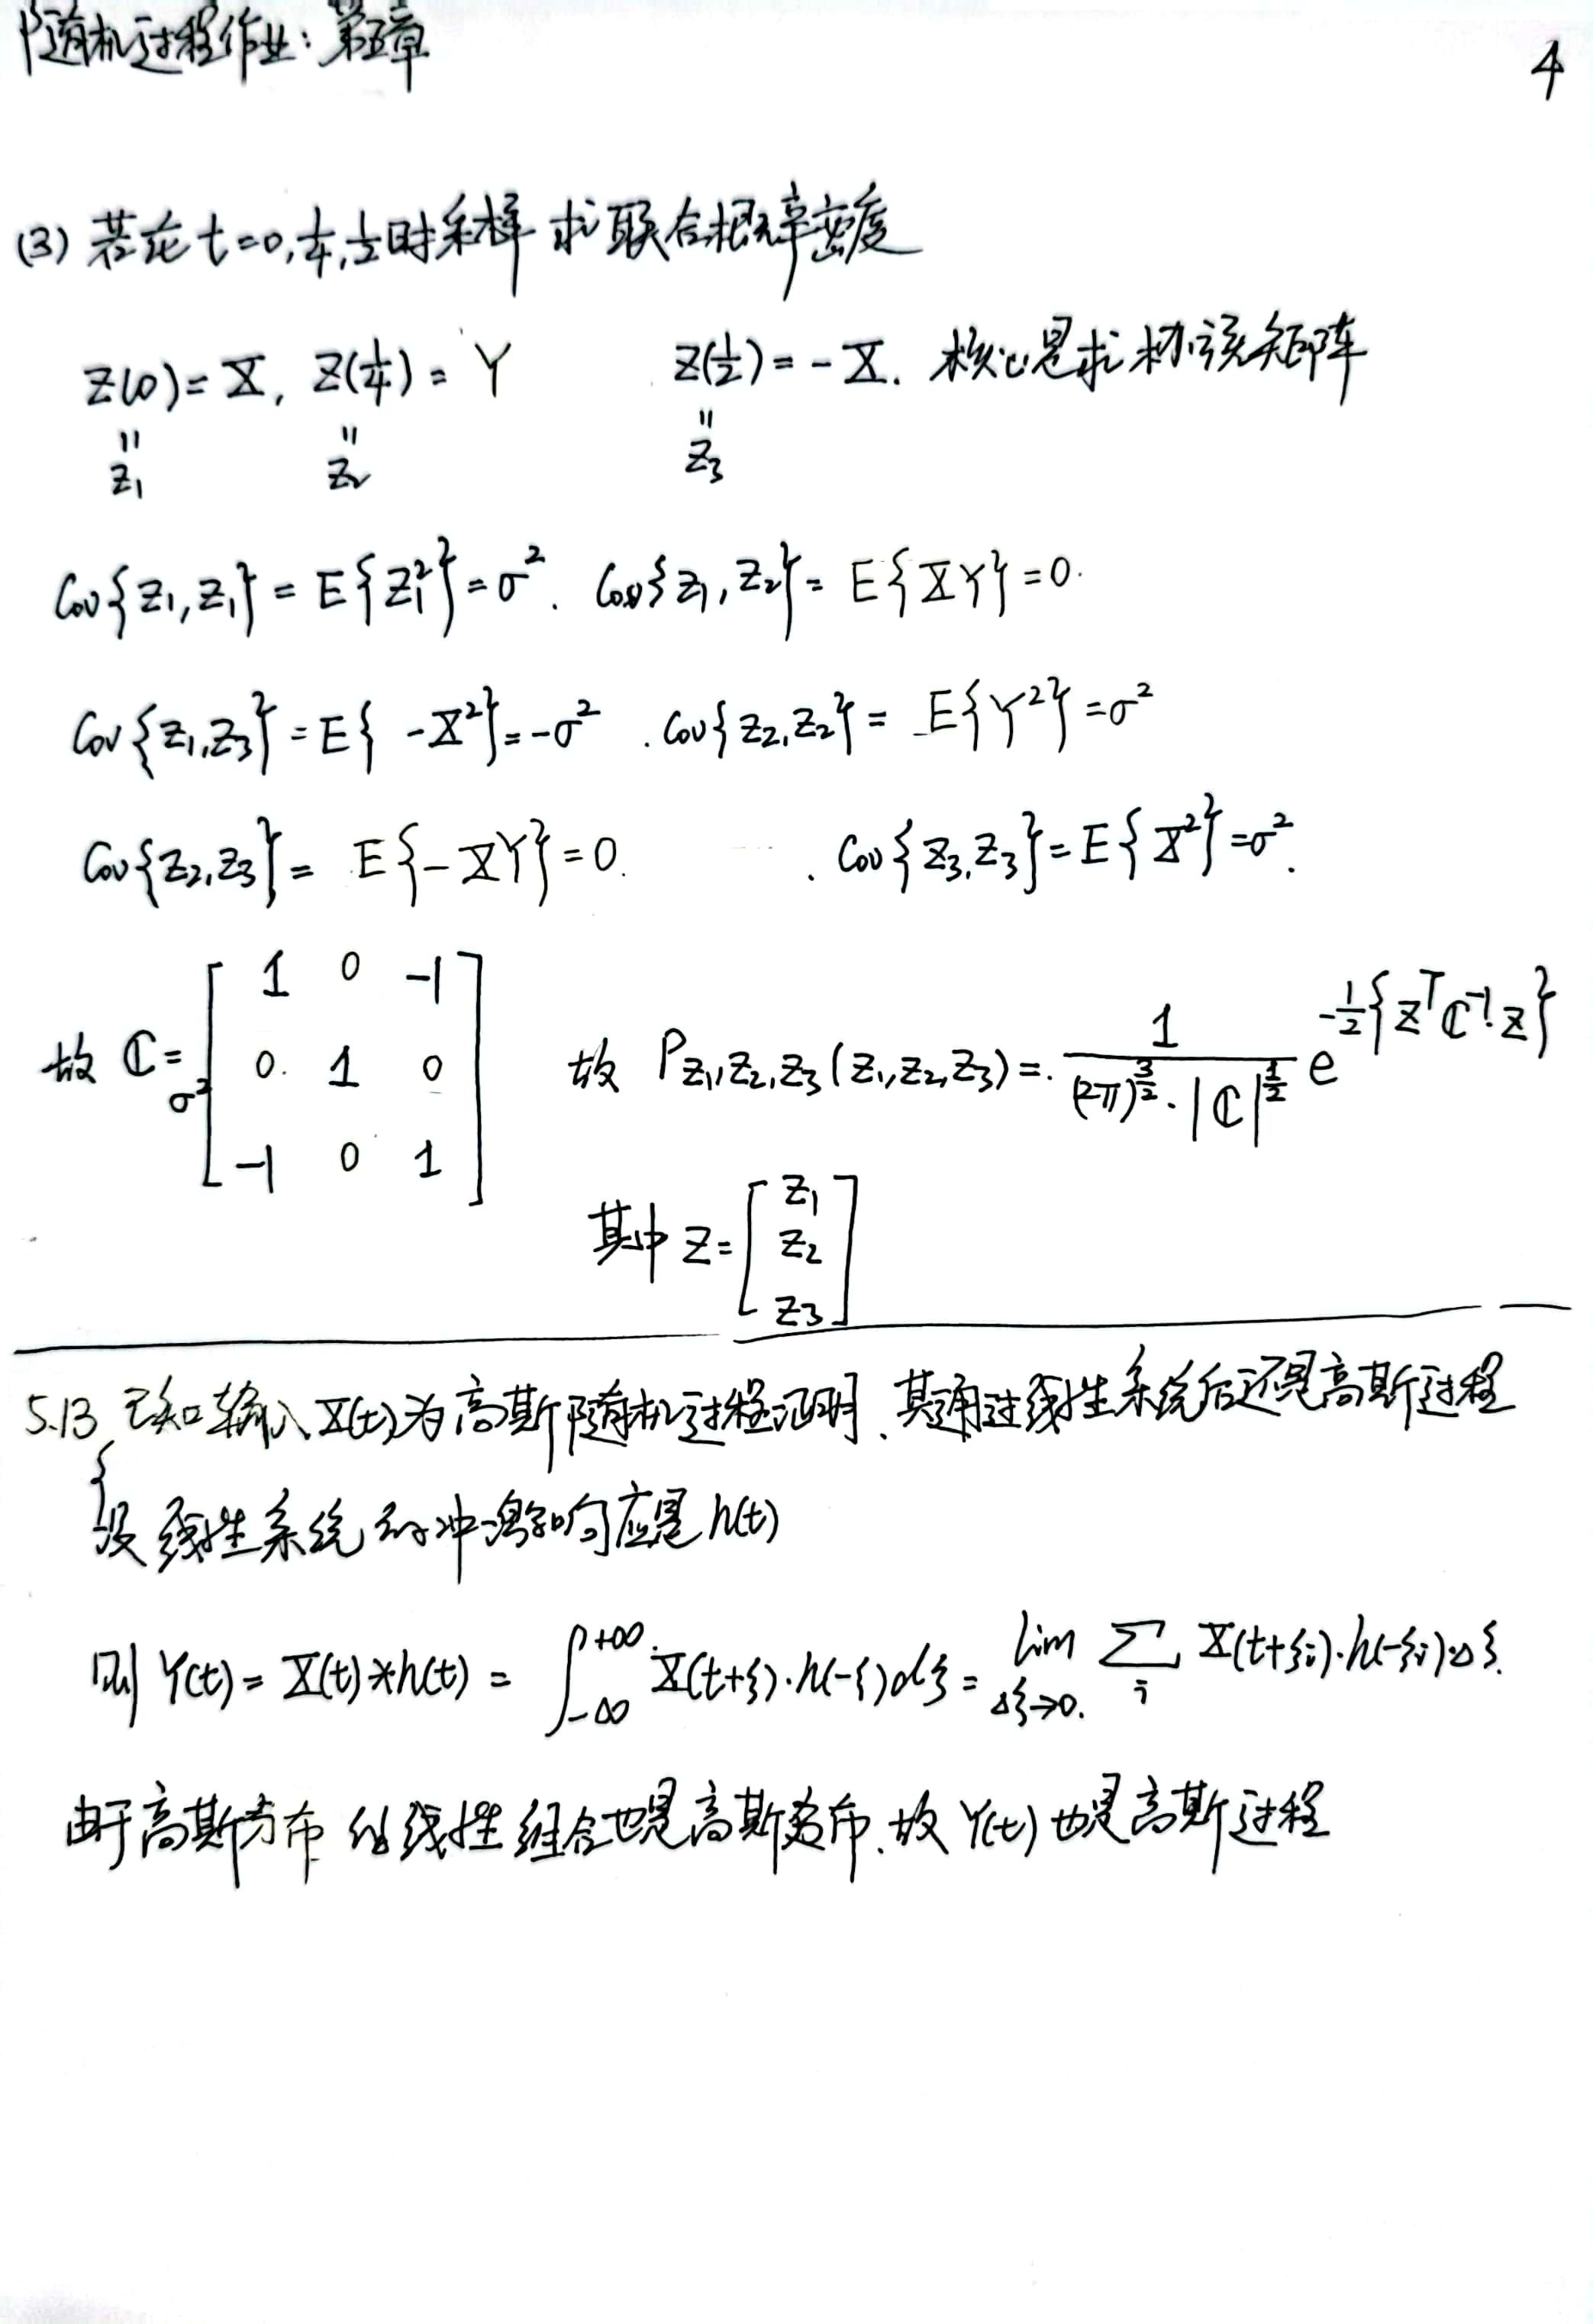 随机过程作业：第五章
4
(3) 若在 t=0, 1/4, 1/2时采样 求联合概率密度
Z(0)=X, Z(1/4)=Y Z(1/2)=-X. 核心是求协方差矩阵
|| || ||
Z₁ Z₂ Z₃
Cov{Z₁,Z₁}=E{Z₁²}=σ². Cov{Z₁,Z₂}=E{XY}=0.
Cov{Z₁,Z₃}=E{-X²}=-σ². Cov{Z₂,Z₂}=E{Y²}=σ²
Cov{Z₂,Z₃}=E{-XY}=0. Cov{Z₃,Z₃}=E{X²}=σ².
故 ℂ=σ² [1 0 -1; 0 1 0; -1 0 1] 故 P_{Z₁,Z₂,Z₃}(Z₁,Z₂,Z₃)= 1/((2π)^{3/2}·|ℂ|^{1/2}) e^{-1/2{Z^T ℂ^{-1} Z}}
其中 Z=[Z₁; Z₂; Z₃]
5.13 已知输入X(t)为高斯随机过程证明、其通过线性系统后还是高斯过程
{设线性系统的冲激响应是h(t)
则 Y(t)=X(t)*h(t)=∫_{-∞}^{+∞} X(t+ξ)·h(-ξ)dξ=lim_{Δξ→0} Σ_i X(t+ξi)·h(-ξi)Δξ.
由于高斯分布 的线性组合也是高斯分布、故 Y(t)也是高斯过程